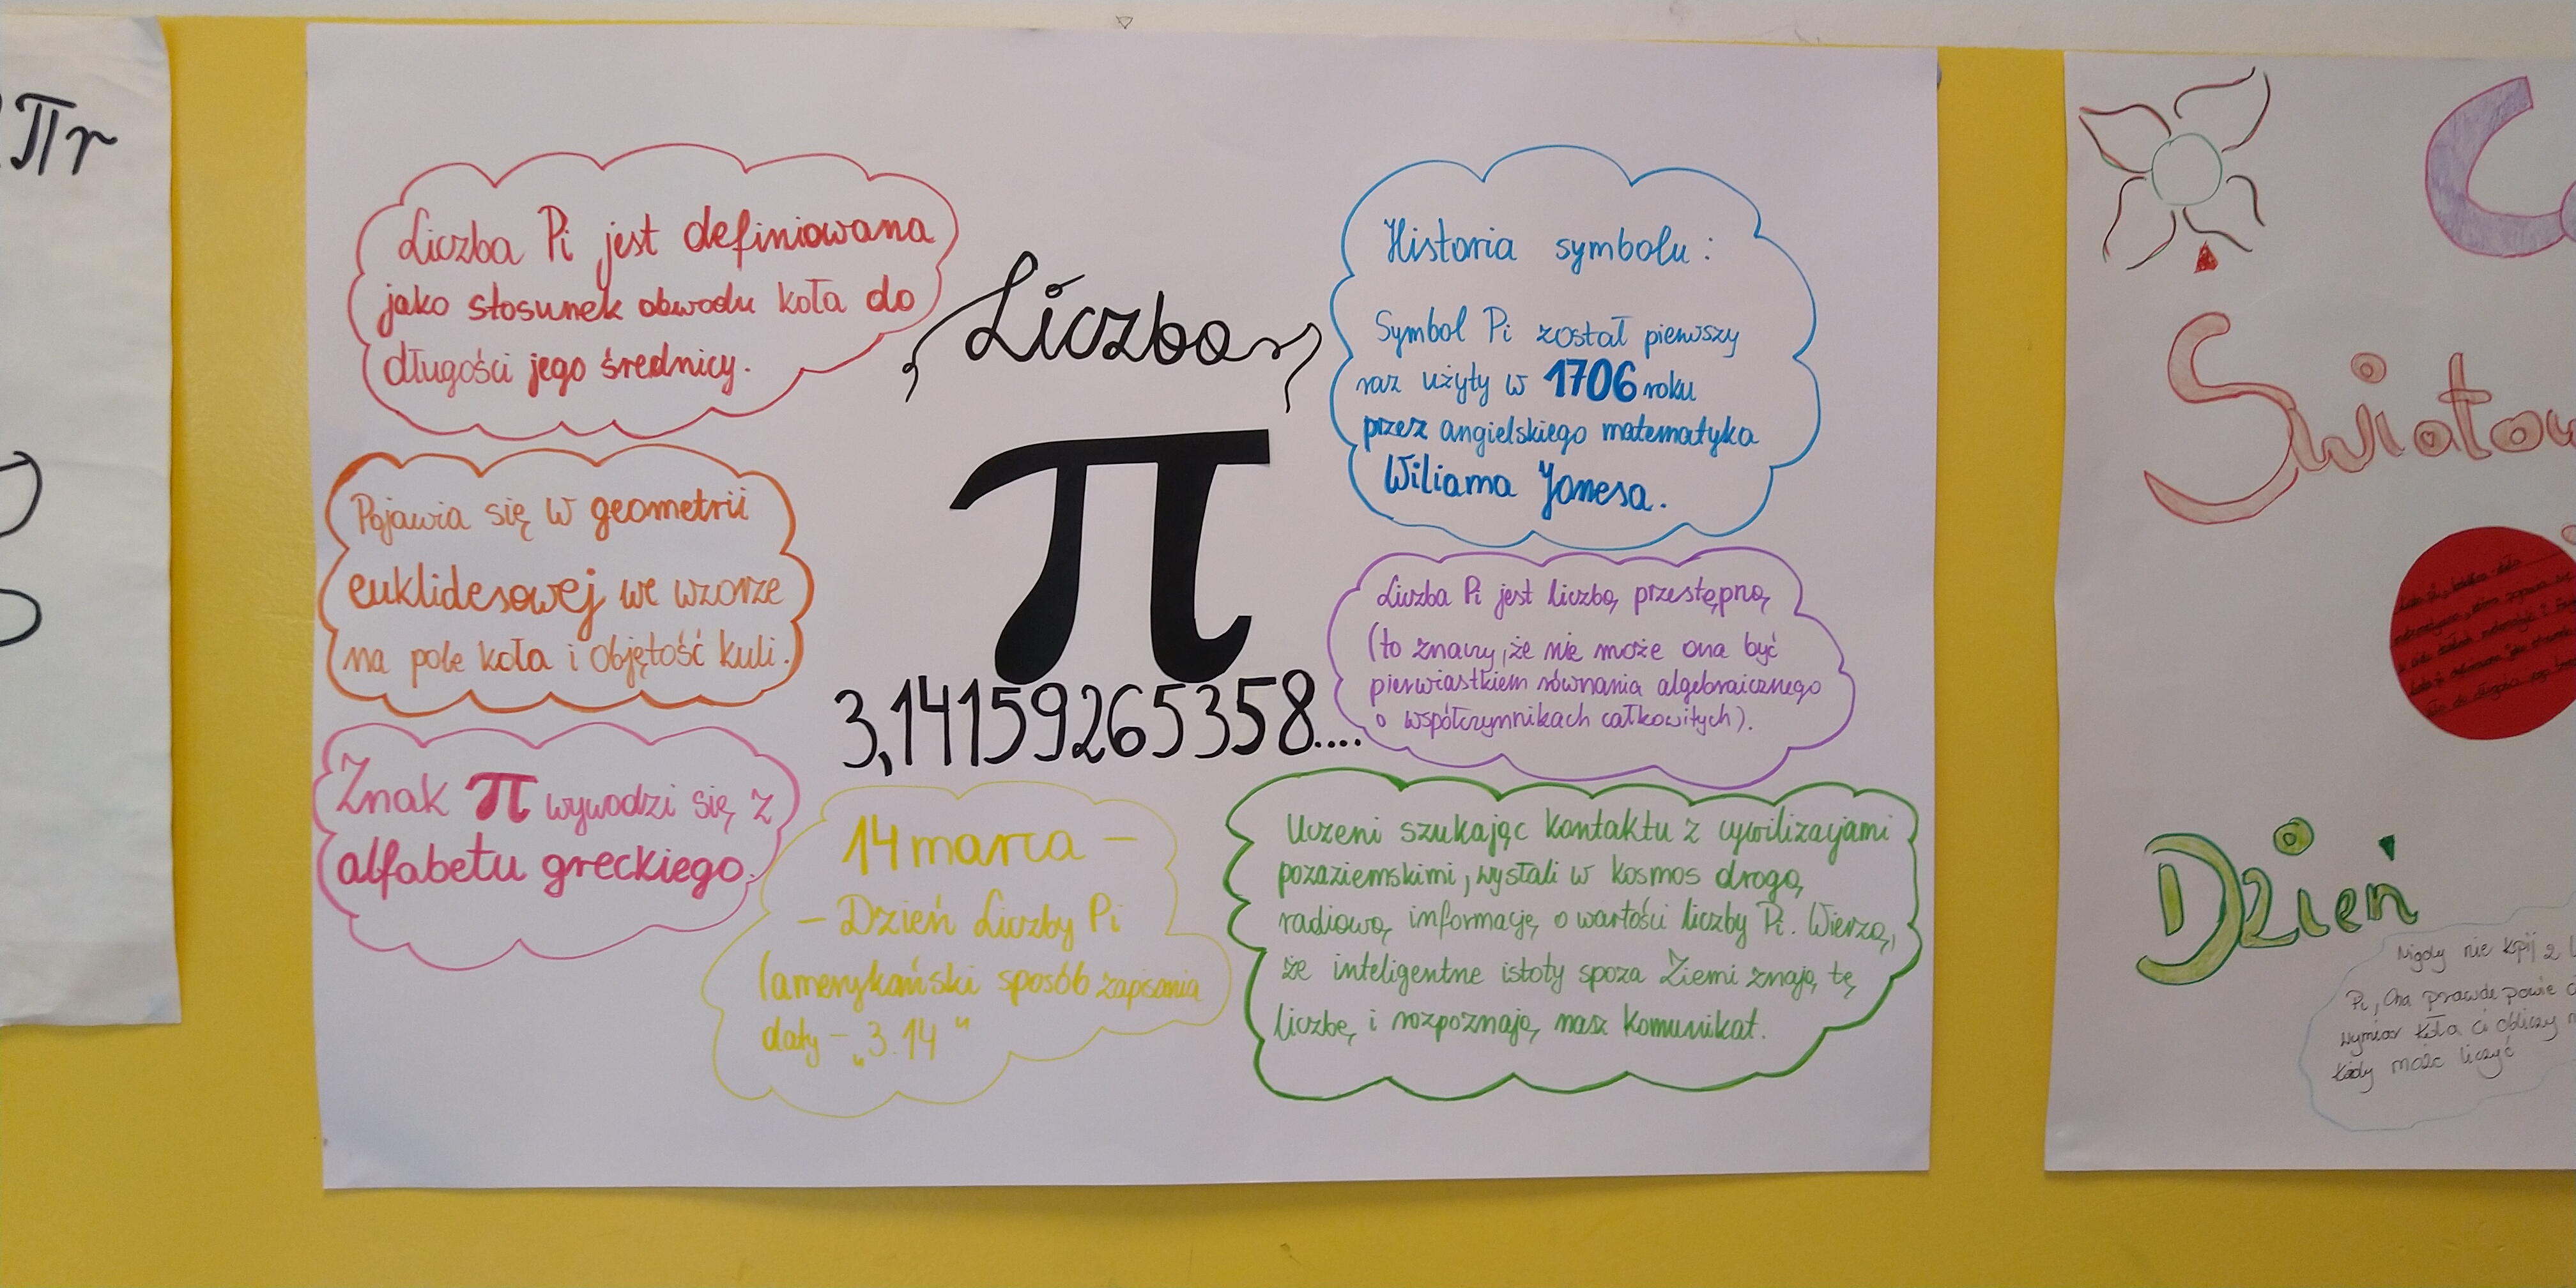 πr
Liczba Pi jest definiowana
jako stosunek obwodu koła do
długości jego średnicy.
Pojawia się w geometrii
euklidesowej we wzorze
na pole koła i objętość kuli.
Znak π wywodzi się z
alfabetu greckiego.
Liczba
π
3,14159265358....
14 marca –
– Dzień Liczby Pi
(amerykański sposób zapisania
daty – „3.14"
Historia symbolu:
Symbol Pi został pierwszy
raz użyty w 1706 roku
przez angielskiego matematyka
Wiliama Jonesa.
Liczba Pi jest liczbą przestępną
(to znaczy, że nie może ona być
pierwiastkiem równania algebraicznego
o współczynnikach całkowitych).
Uczeni szukając kontaktu z cywilizacjami
pozaziemskimi, wysłali w kosmos drogą
radiową informację o wartości liczby Pi. Wierzą,
że inteligentne istoty spoza Ziemi znają tę
liczbę i rozpoznają nasz komunikat.
Światow
Dzień
Nigdy nie kpij z
Pi, Ona prawdę powie
wymiar koła ci obliczy
liczyć